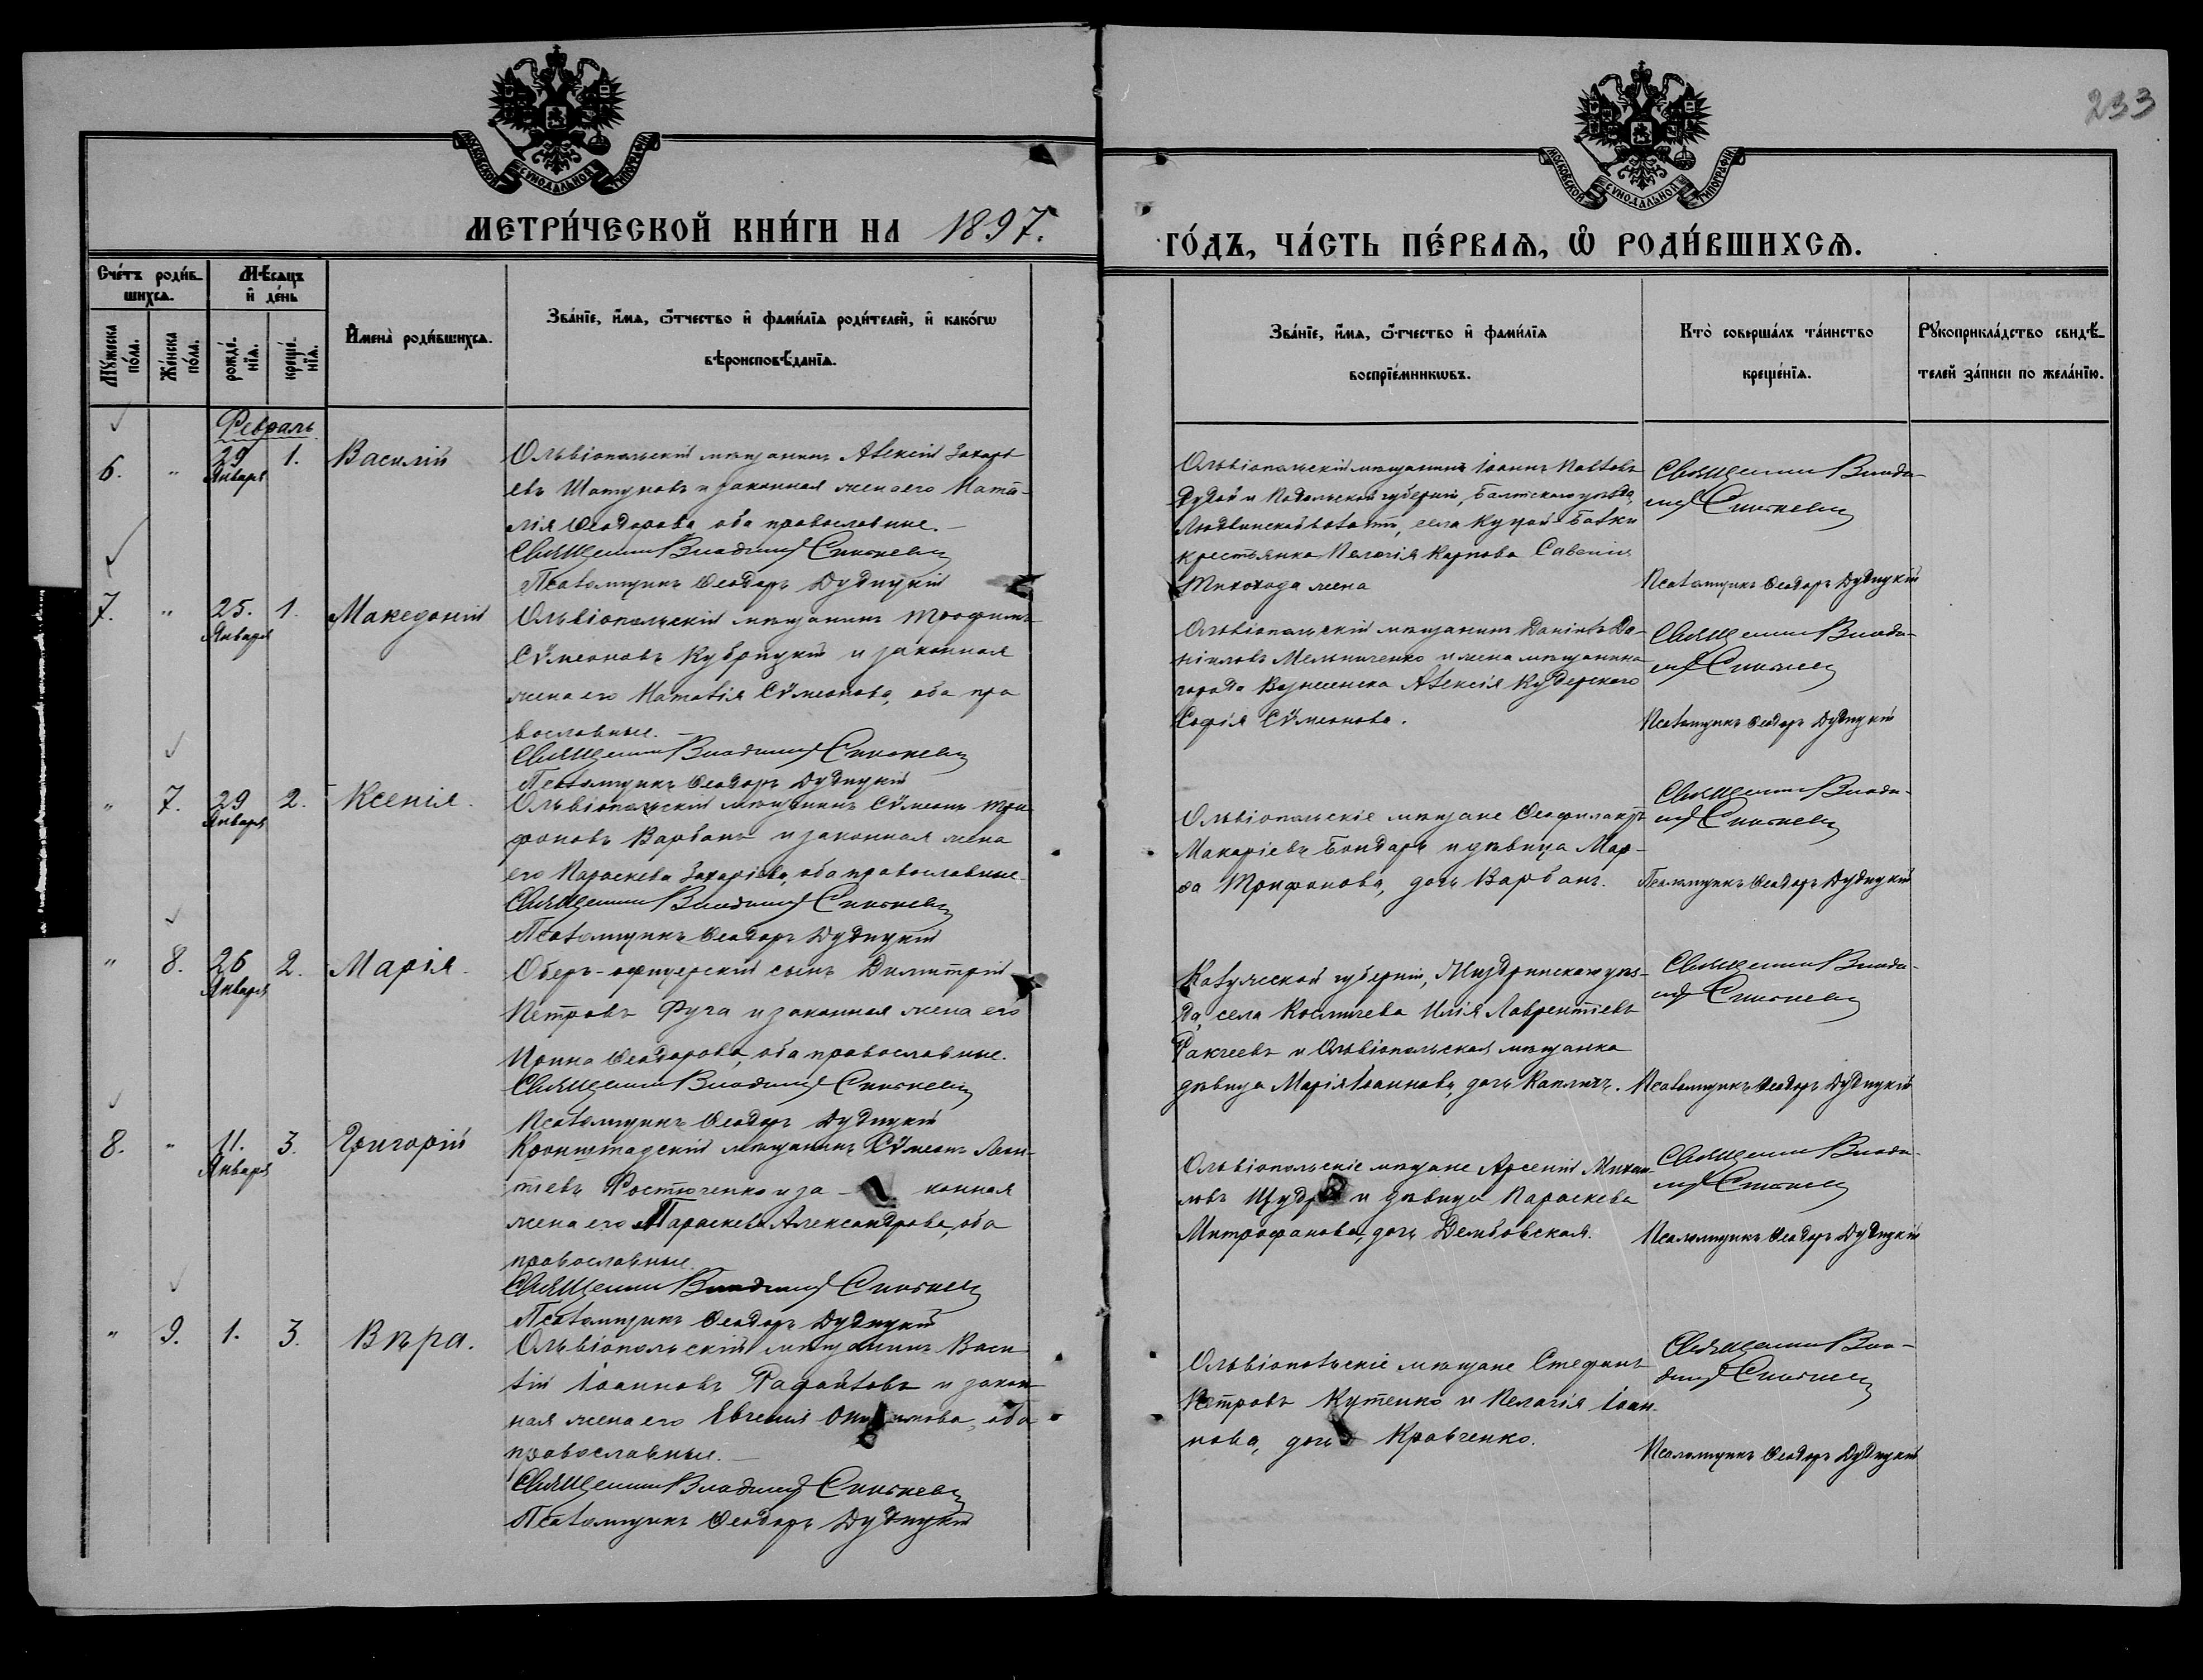 233
МОСКОВСКОЙ СѴНОДАЛЬНОЙ ТИПОГРАФІИ
МОСКОВСКОЙ СѴНОДАЛЬНОЙ ТИПОГРАФІИ
МЕТРИ́ЧЕСКОЙ КНИ́ГИ НА 1897.
ГО́ДЪ, ЧА́СТЬ ПЕ́РВАѦ, Ѡ҆ РОДИ́ВШИХСѦ.
Сче́тъ роди́в-
шихсѧ.
Мѣ́сѧцъ
и҆ де́нь
Мꙋ́жеска
по́ла.
Же́нска
по́ла.
рожде́-
нїѧ.
креще́-
нїѧ.
И҆мена̀ роди́вшихсѧ.
Зва́нїе, и҆́мѧ, ѻ҆́тчество и҆ фами́лїѧ роди́телей, и҆ како́гѡ
вѣроисповѣ́данїѧ.
Зва́нїе, и҆́мѧ, ѻ҆́тчество и҆ фами́лїѧ
воспрїе́мникѡвъ.
Кто̀ соверша́лъ та́инство
креще́нїѧ.
Рꙋкоприкла́дство свидѣ́-
телей за́писи по жела́нїю.
Февраль
6. " 29 Января 1. Василій
Ольвіопольскій мѣщанинъ Алексій Захарі-
евъ Шатуновъ и законная жена его Ната-
лія Ѳеодорова оба православные.
Священникъ Владимір
Псаломщикъ Ѳеодоръ Дудницкій
Ольвіопольскій мѣщанинъ Іоаннъ Павловъ
и Подольской губерніи, Балтскаго уѣзда,
волости, села
крестьянка Пелагія Карпова
жена
Священникъ Влади-
мір
Псаломщикъ Ѳеодоръ Дудницкій
7. " 25. Января 1. Македоній
Ольвіопольскій мѣщанинъ Трофимъ
Сѵмеоновъ Кубрицкій и законная
жена его Наталія Сѵмеонова, оба пра
вославные.
Священникъ Владимір
Псаломщикъ Ѳеодоръ Дудницкій
Ольвіопольскій мѣщанинъ Даніилъ Да-
ніиловъ Мельниченко и жена мѣщанина
города Вознесенска Алексія Кудерского
Софія Сѵмеонова.
Священникъ Влади-
мір
Псаломщикъ Ѳеодоръ Дудницкій
" 7. 29 Января 2. Ксенія.
Ольвіопольскій мѣщанинъ Сѵмеонъ Три-
фоновъ Варбанъ и законная жена
его Параскева Захаріева, оба православные.
Священникъ Владимір
Псаломщикъ Ѳеодоръ Дудницкій
Ольвіопольскіе мѣщане Ѳеофилактъ
Макаріевъ Бондарь и дѣвица Мар-
ѳа Трифонова, дочь Варбанъ.
Священникъ Влади-
мір
Псаломщикъ Ѳеодоръ Дудницкій
" 8. 26 Января 2. Марія.
Оберъ-офицерскій сынъ Димитрій
Петровъ Фуга и законная жена его
Ирина Ѳеодорова, оба православные.
Священникъ Владимір
Псаломщикъ Ѳеодоръ Дудницкій
Калужской губерніи, уѣз-
да, села Илія Лаврентіевъ
и Ольвіопольская мѣщанка
дѣвица Марія Іоаннова, дочь
Священникъ Влади-
мір
Псаломщикъ Ѳеодоръ Дудницкій
8. " 11. Января 3. Григорій
Кронштадскій мѣщанинъ Сѵмеонъ Леон-
тіевъ Ростюченко и за - конная
жена его Параскева Александрова, оба
православные.
Священникъ Владимір
Псаломщикъ Ѳеодоръ Дудницкій
Ольвіопольскіе мѣщане Арсеній Михаи-
ловъ и дѣвица Параскева
Митрофанова, дочь Дембовская.
Священникъ Влади-
мір
Псаломщикъ Ѳеодоръ Дудницкій
" 9. 1. 3. Вѣра.
Ольвіопольскій мѣщанинъ Васи
лій Іоанновъ Рафаиловъ и закон-
ная жена его Евгенія оба
православные.
Священникъ Владимір
Псаломщикъ Ѳеодоръ Дудницкій
Ольвіопольскіе мѣщане Стефанъ
Петровъ Кутенко и Пелагія Іоан-
нова, дочь Кравченко.
Священникъ Вла-
димір
Псаломщикъ Ѳеодоръ Дудницкій